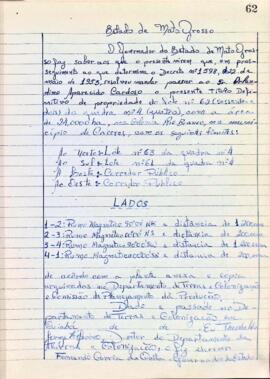 62
Estado de Mato Grosso
O Governador do Estado de Mato Gros-
so faz saber aos que o presente virem que, em pros-
seguimento ao que determina o Decreto nº 1598, de 22 de
maio de 1953, resolveu mandar passar ao Sr.
Aparecido Cardoso o presente Título Defi-
nitivo de propriedade do lote nº 62 (sessenta e
dois) da quadra nº 4 (quatro), com a área
de 24,000ha, na Colonia Rio Branco, no mu-
nicípio de Cáceres, com os seguintes limites:
Ao Norte: Lote nº 63 da quadra nº 4
Ao Sul: Lote nº 61 da quadra nº 4
A Oeste: Corredor Público
Ao Leste: Corredor Público
LADOS
1-2: Rumo Magnético a distancia de
2-3: Rumo Magnético a distancia de 200
3-4: Rumo Magnético a distancia de
4-1: Rumo Magnético a distancia de 200
de acordo com a planta anexa e copia
arquivadas no Departamento de Terras e Colonização
e Comissão de Planejamento da Produção.
Dado e passado no De-
partamento de Terras e Colonização em
Cuiabá de de Eu
Diretor do Departamento
de Terras e Colonização,
Fernando Corrêa da Costa Governador do Estado